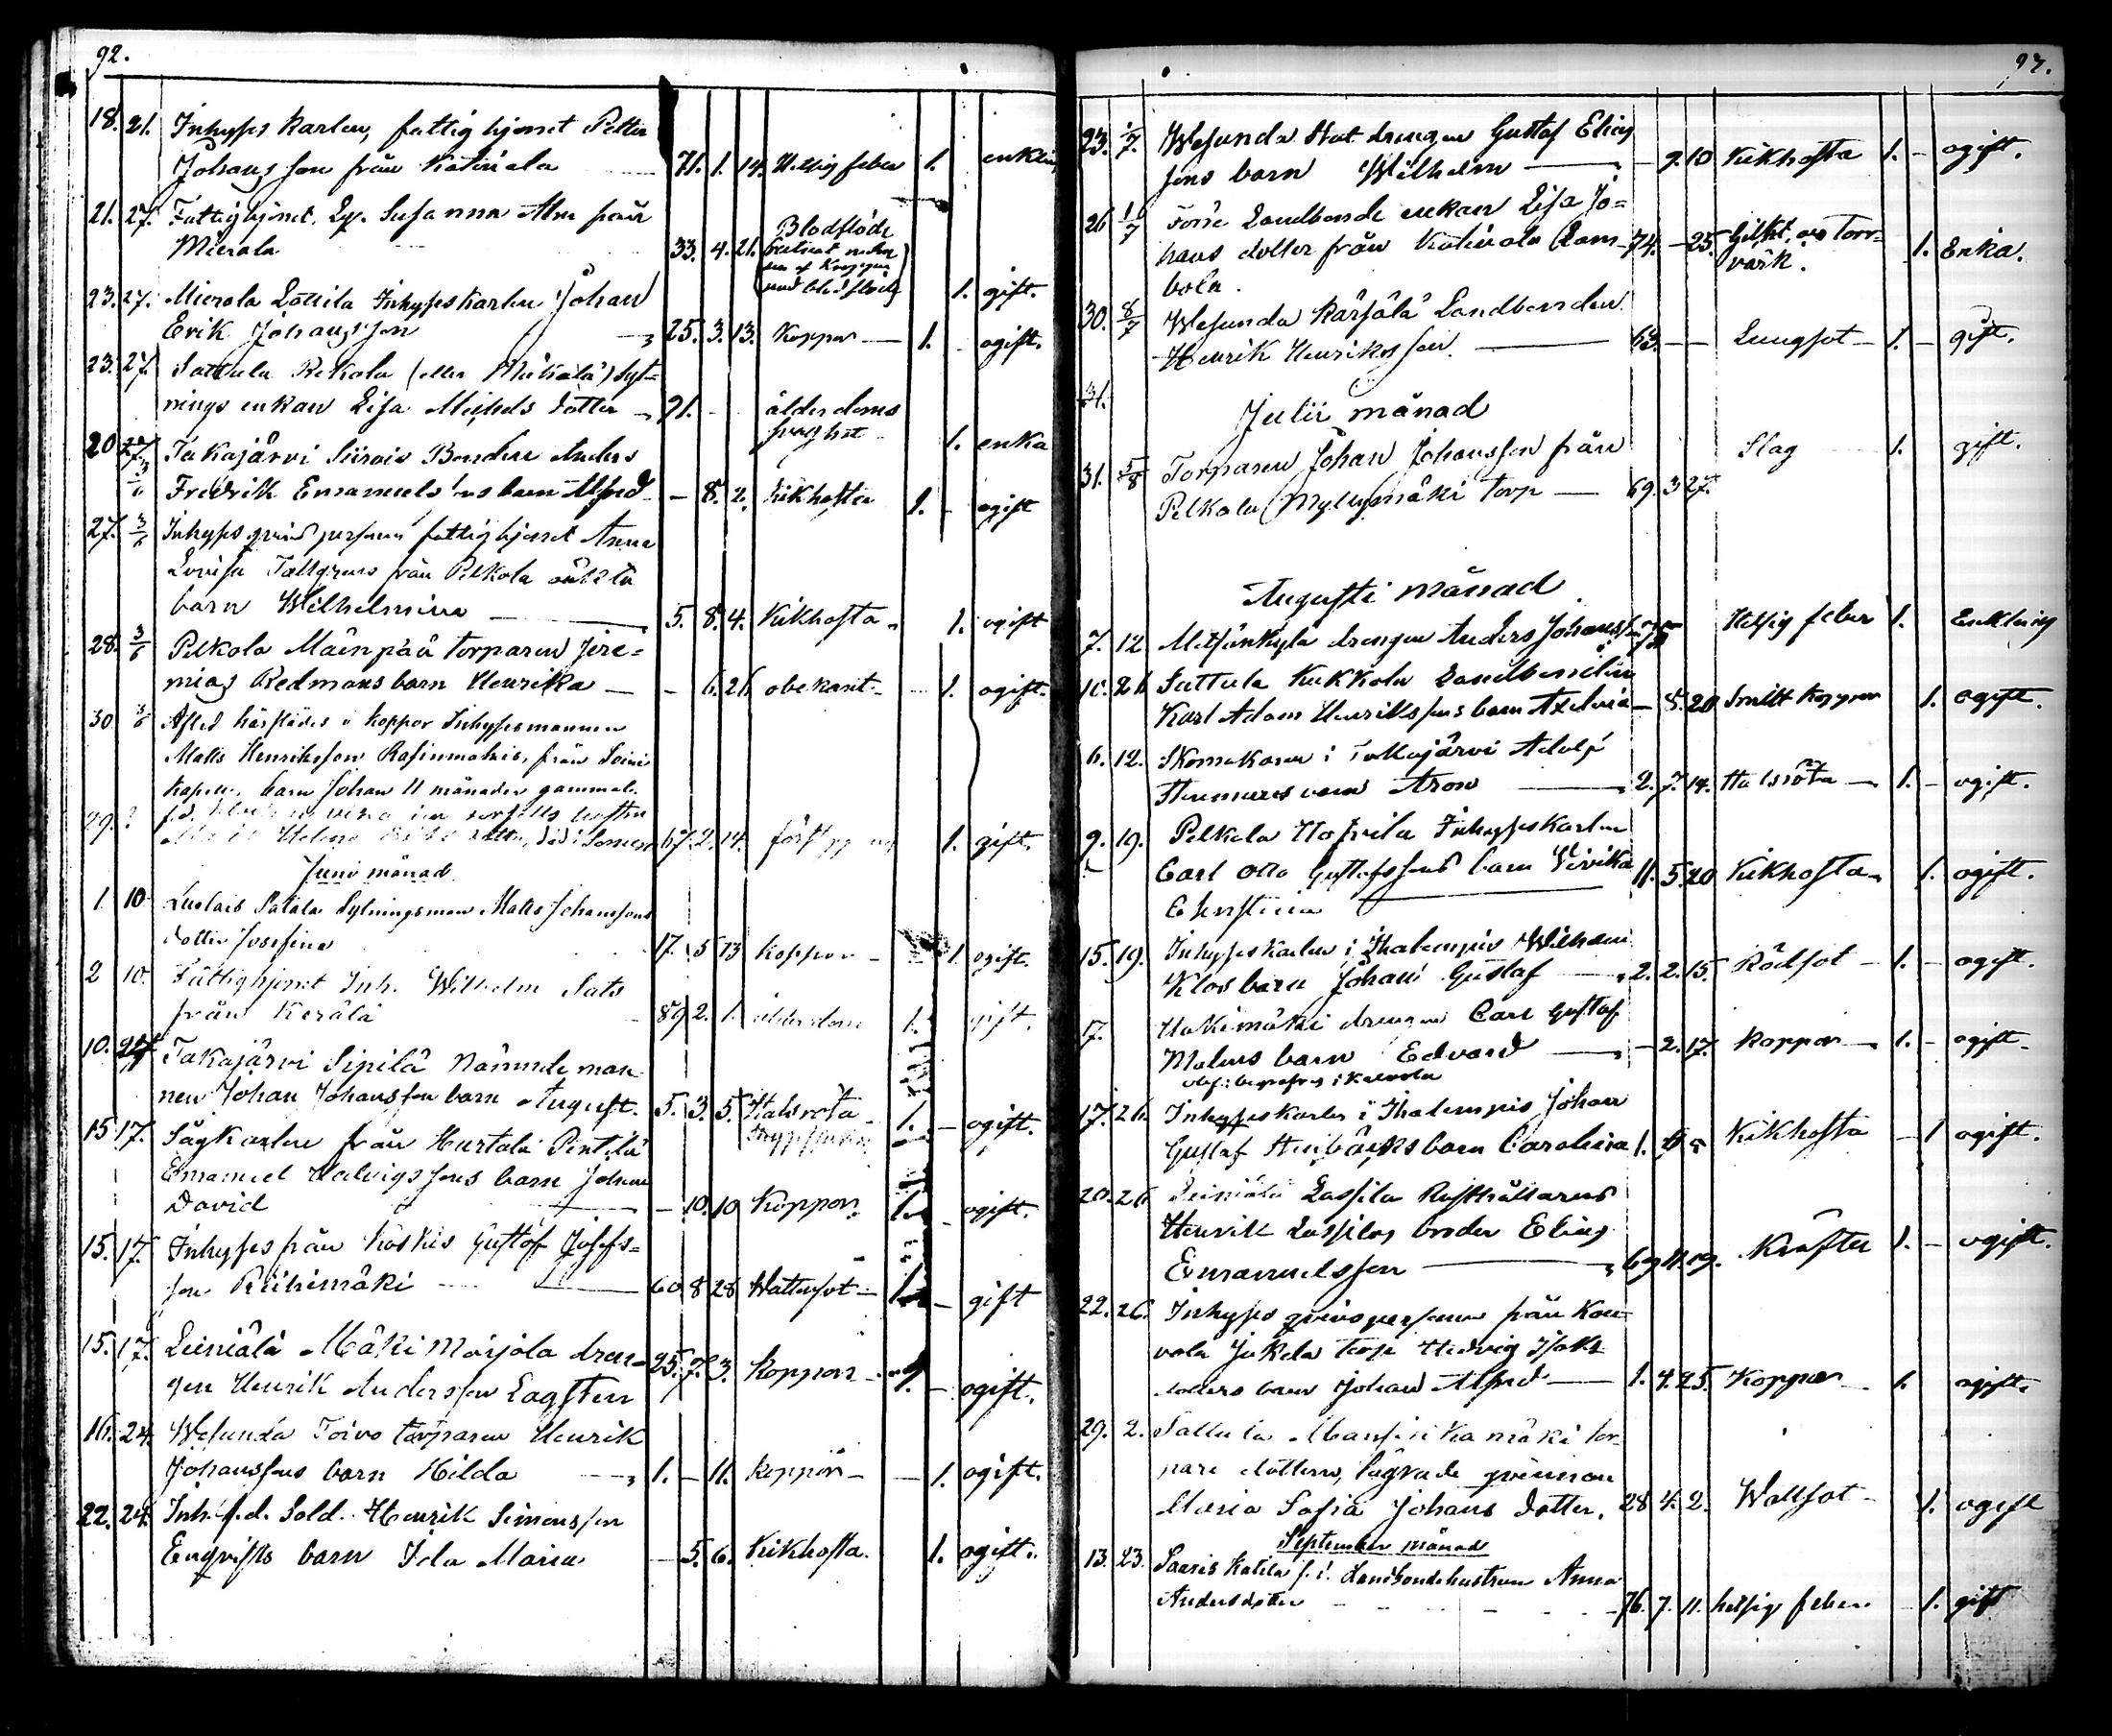 92.
18. 21. Inhyses karlen, fattighjonet Petter
Johansson från Kativala 71. 1. 14. Hetsig feber 1. enkling
21. 27. Fattighjonet. Susanna Alm från
Mierola 33. 4. 21. Blodflöde
med blodflöde 1. gift.
23. 27. Mierola Lottila Inhyses karlen Johan
Erik Johansson 25. 3. 13. Koppor 1. ogift.
23. 27. Sattula Rekola (eller Mikola) Syt=
nings enkan Lisa Michels dotter 91. ålderdoms
svaghet 1. enka
20 27. Takajärvi Siirois Bonden Anders
3/6 Fredrik Emanuelssons barn Alfred - 8. 2. Kikhosta 1. - ogift
27. 3/6 Inhyses qvinspersonen fattighjonet Anna
Lovisa Tallgrens från Pelkola oäkta
barn Wilhelmina 5. 8. 4. Kikhosta 1. ogift
28. 3/6 Pelkola Mäenpää torparen Jere=
mias Redmans barn Henrika - 6. 26 obekant 1. ogift.
30 3/6 Afled härstädes i koppor Inhysesmannen
Matts Henriksson från Loimi
kapell, barn Johan 11 månader gammal.
29. ? 67. 2. 14. 1. gift.
Juni månad
1. 10. Luolais Patala Sytningsman Matts Johanssons
dotter Josefina 17. 5 13 koppor 1. ogift.
2 10. Fattighjonet Inh. Wilhelm Sats
från Kerälä 89 2. 1. ålderdom 1. gift.
10. 24 Takajärvi Sipilä Nämndeman
nen Johan Johansson barn August. 5. 3. 5 Halsröta
1. - ogift.
15 17. Sågkarlen från Hurtala Pentilä
Emanuel Hedvigssons barn Johan
David - 10. 10 Koppor. 1. - ogift.
15. 17. Inhyses från Köskis Gustaf Josefs=
son Riihimäki 60 8 28 Wattusot 1. - gift
15. 17. Leiniälä Mäki Marjola dren=
gen Henrik Andersson Lagsten 25. 7. 3. koppor 1. - ogift.
16. 24. Wesunda Toivo torparen Henrik
Johanssons barn Hilda 1. - 11. koppor - - 1. ogift.
22. 24. Inh. f.d. Sold. Henrik Simonsson
Enqvists barn Ida Maria - 5. 6. Kikhosta. 1. ogift.
93.
23. 1/7. Wesunda Stat drengen Gustaf Elias
sons barn Wilhelm - 9. 10 Kikhosta 1. - ogift.
26 1/7 Förre Landbonde enkan Lisa Jo=
hans dotter från Kativala (Lam- 74. - 25. Gikt, Torr-
bola. värk. 1. Enka.
30. 8/7 Wesunda Kärjälä Landbonden
Henrik Henriksson. 63. - - Lungsot - 1. - gift.
31.
Julii månad
31. 5/8 Torparen Johan Johansson från Slag 1. gift.
Pelkola Myllymäki torp 69. 3 27.
Augusti månad
7. 12 Metsänkylä drengen Anders Johansson 75 Hetsig feber 1. Enkling
10. 26 Sattula Kukkola Landbonden
Karl Adam Henrikssons barn Axelina - 5. 20 Smitt koppor 1. ogift.
6. 12. Skomakaren i Takajärvi Adolf
barn Aron 2. 7. 14. Halsröta 1. - ogift.
9. 19. Pelkola Hofvila Inhyses karlen
Carl Otto Gustafssons barn Vivika 11. 5. 20 Kikhosta 1. ogift.
Christina
15. 19. Inhyses karlen i Ihalempis Wilhelm
Klos barn Johan Gustaf 2. 2. 15. Rödsot - 1. - ogift.
17. Hakimäki drengen Carl Gustaf
Malms barn Edvard - 2. 17. koppor 1. - ogift.
begrafves i Kalvola
17. 26. Inhyses karlen i Ihalempis Johan
Gustaf barn Carolina 1. Kikhosta - 1 ogift.
20. 26 Leiniälä Lassila Rusthållarens
Henrik Lassilas broder Elias
Emanuelsson 69 11. 19. Kräfta 1. - ogift.
22. 26. Inhyses qvinspersonen från Kou-
vola Jukela torp Hedvig Isaks
dotters barn Johan Alfred 1. 4. 25. Koppor 1. ogift.
29. 2. Sattula mäki tor-
pare dottern, lägrade qvinnan
Maria Sofia Johans dotter. 28 4. 2. Wattsot - 1. ogift
September månad
13. 23. Saaris Katila f.d. Landbondehustrun Anna
Andersdotter 76. 7. 11. hetsig feber 1. gift